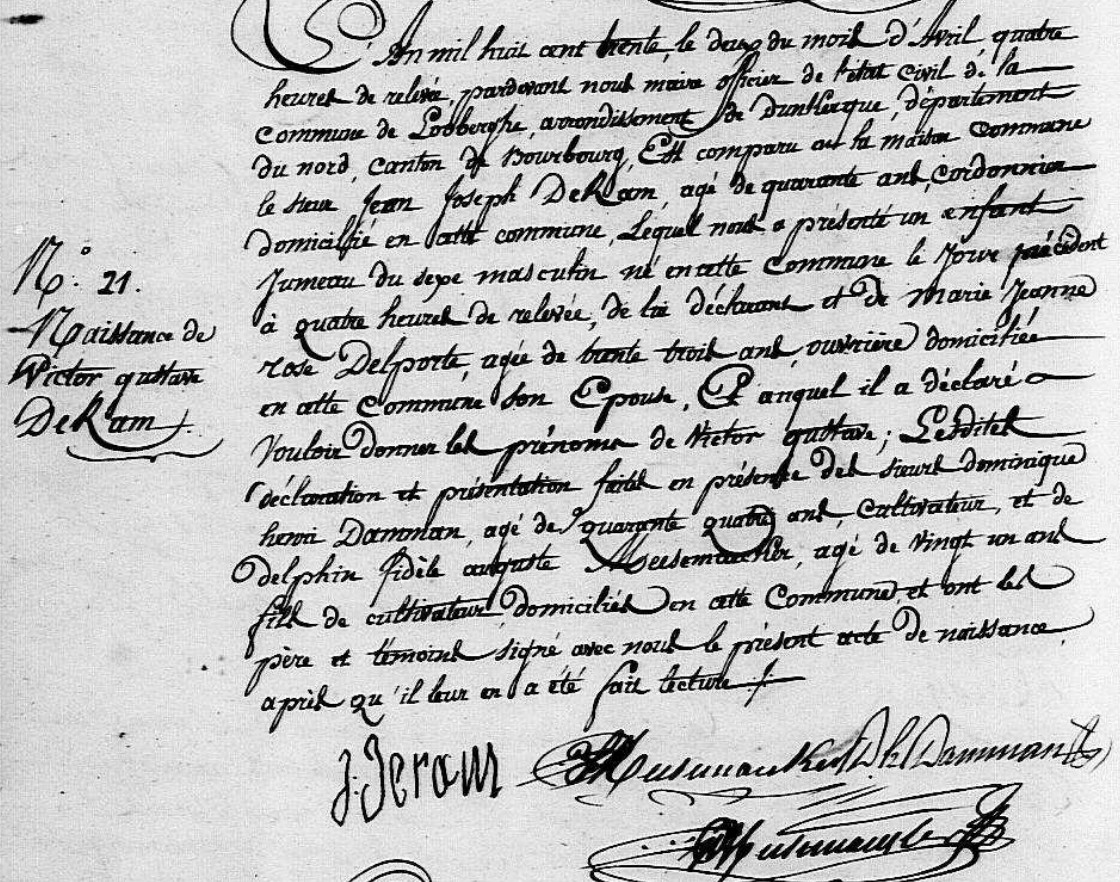 L'An mil huit cent trente, le deux du mois d'Avril, quatre
heures de relevée, pardevant nous maire officier de l'état civil de la
commune de Looberghe, arrondissement de Dunkerque, département
du nord, canton de Bourbourg, Est comparu en la maison commune
le sieur Jean Joseph DeRam, agé de quarante ans, cordonnier
domicilié en cette commune, Lequel nous a présenté un enfant
Jumeau du sexe masculin né en cette Commune le Jour précédent
à quatre heures de relevée, de lui déclarant et de Marie Jeanne
rose Delporte, agée de trente trois ans, ouvrière domiciliée
en cette Commune son Epouse, Et auquel il a déclaré
Vouloir donner les prénoms de Victor gustave ; Lesdites
déclaration et présentation faites en présence des sieurs dominique
henri Damman, agé de quarante quatre ans, cultivateur, et de
Delphin fidèle auguste Meesemaecker, agé de Vingt un ans
fils de cultivateur, domiciliés en cette Commune, et ont les
père et témoins signé avec nous le présent acte de naissance,
après qu'il leur en a été fait lecture ./.
N.° 21.
Naissance de
Victor gustave
DeRam
D h Damman